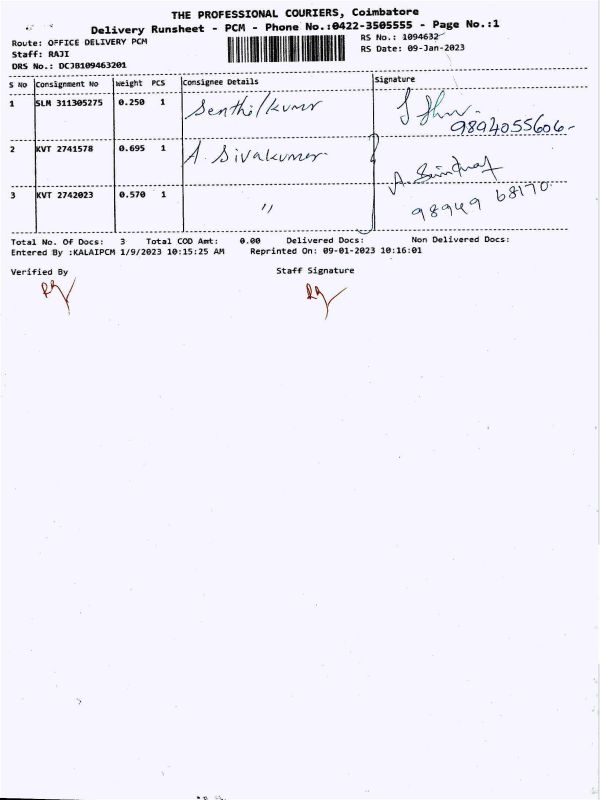 THE PROFESSIONAL COURIERS, Coimbatore
Delivery Runsheet - PCM - Phone No.:0422-3505555 - Page No.:1
Route: OFFICE DELIVERY PCM
RS No.: 1094632
Staff: RAJI
RS Date: 09-Jan-2023
DRS No.: DCJB109463201
S No Consignment No Weight PCS Consignee Details Signature
1 SLM 311305275 0.250 1 Senthilkumar
9894055606
2 KVT 2741578 0.695 1 A. Sivakumar
3 KVT 2742023 0.570 1 "
98949 68170
Total No. Of Docs: 3 Total COD Amt: 0.00 Delivered Docs: Non Delivered Docs:
Entered By :KALAIPCM 1/9/2023 10:15:25 AM Reprinted On: 09-01-2023 10:16:01
Verified By Staff Signature